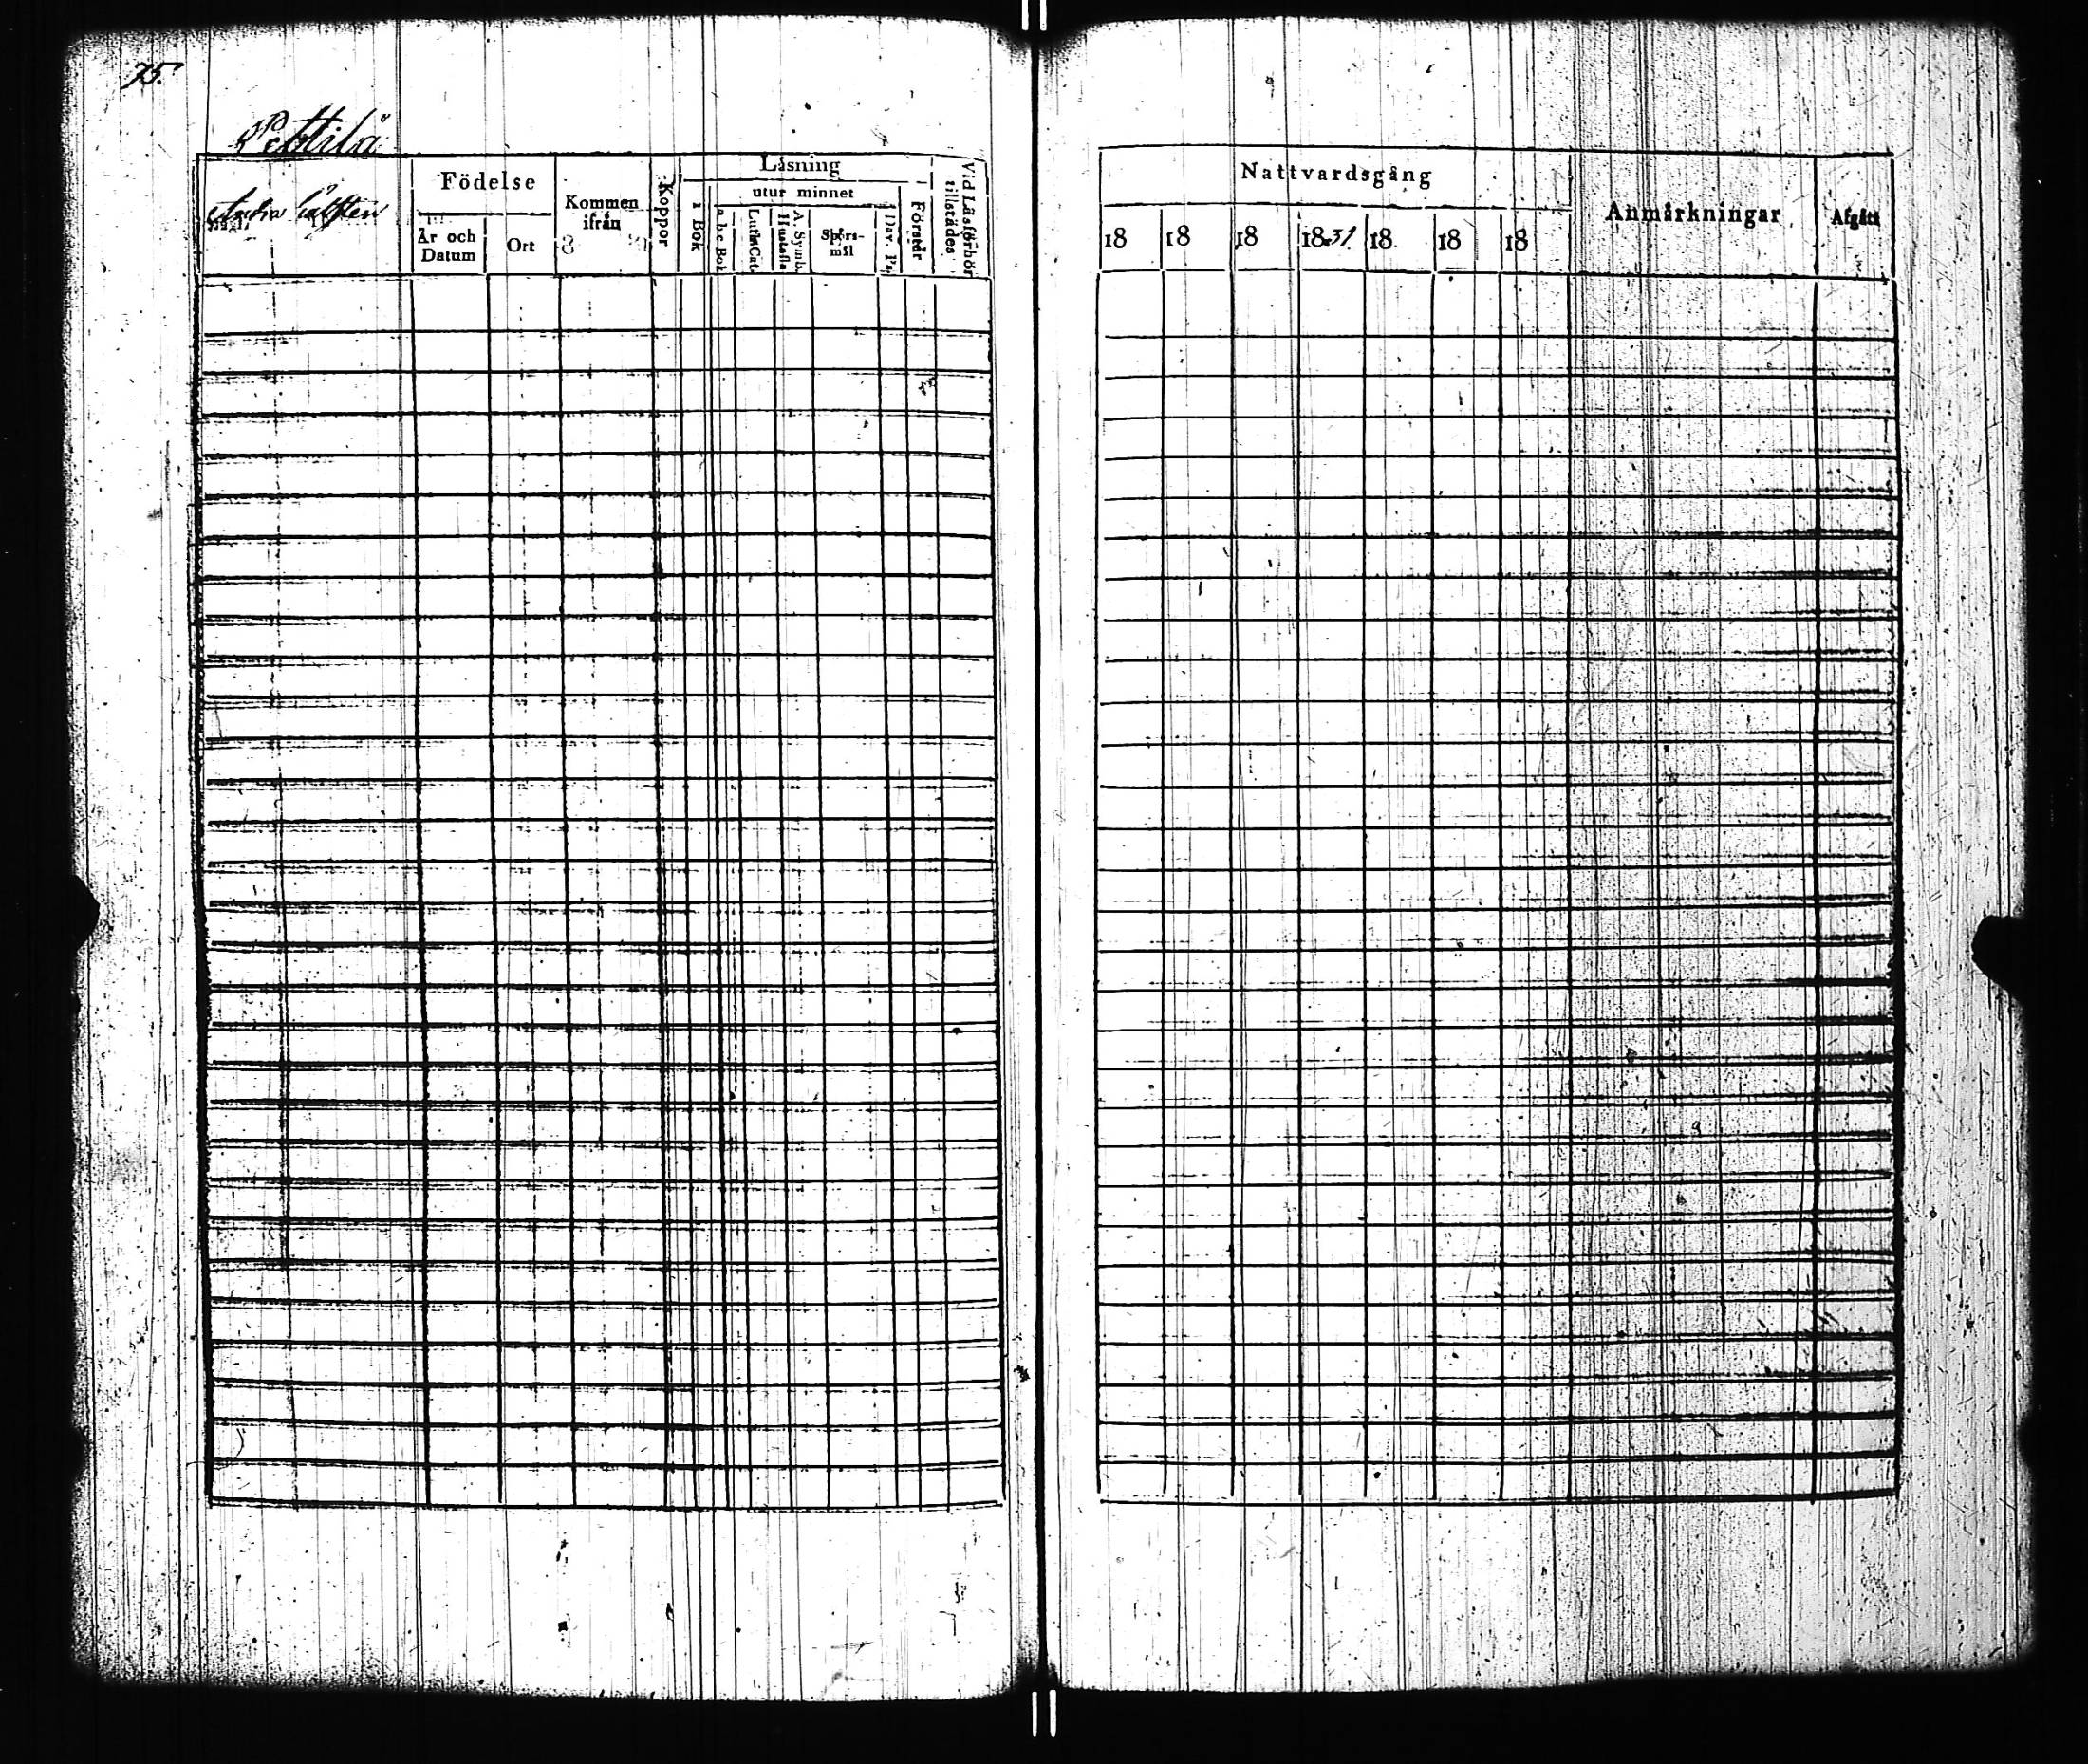 75.
Pettilä
Andra hälften
Födelse
År och Datum
Ort
Kommen ifrån
Koppor
Läsning
i Bok
utur minnet
a b c Bok
Luth. Cat.
A. Symb. Hustafla
Spörs-mål
Dav. Ps.
Förstår
Vid Läsförhör tillstädes
Nattvardsgång
18 18 18 1831 18 18 18
Anmärkningar
Afgått